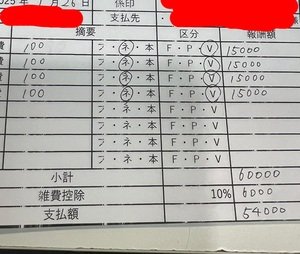 2025年 1月26日 係印
支払先
摘要 区分 報酬額
費 100 フ・ネ・本 F・P・V 15000
費 100 フ・ネ・本 F・P・V 15000
費 100 フ・ネ・本 F・P・V 15000
費 100 フ・ネ・本 F・P・V 15000
フ・ネ・本 F・P・V
フ・ネ・本 F・P・V
フ・ネ・本 F・P・V
フ・ネ・本 F・P・V
小計 60000
雑費控除 10% 6000
支払額 54000